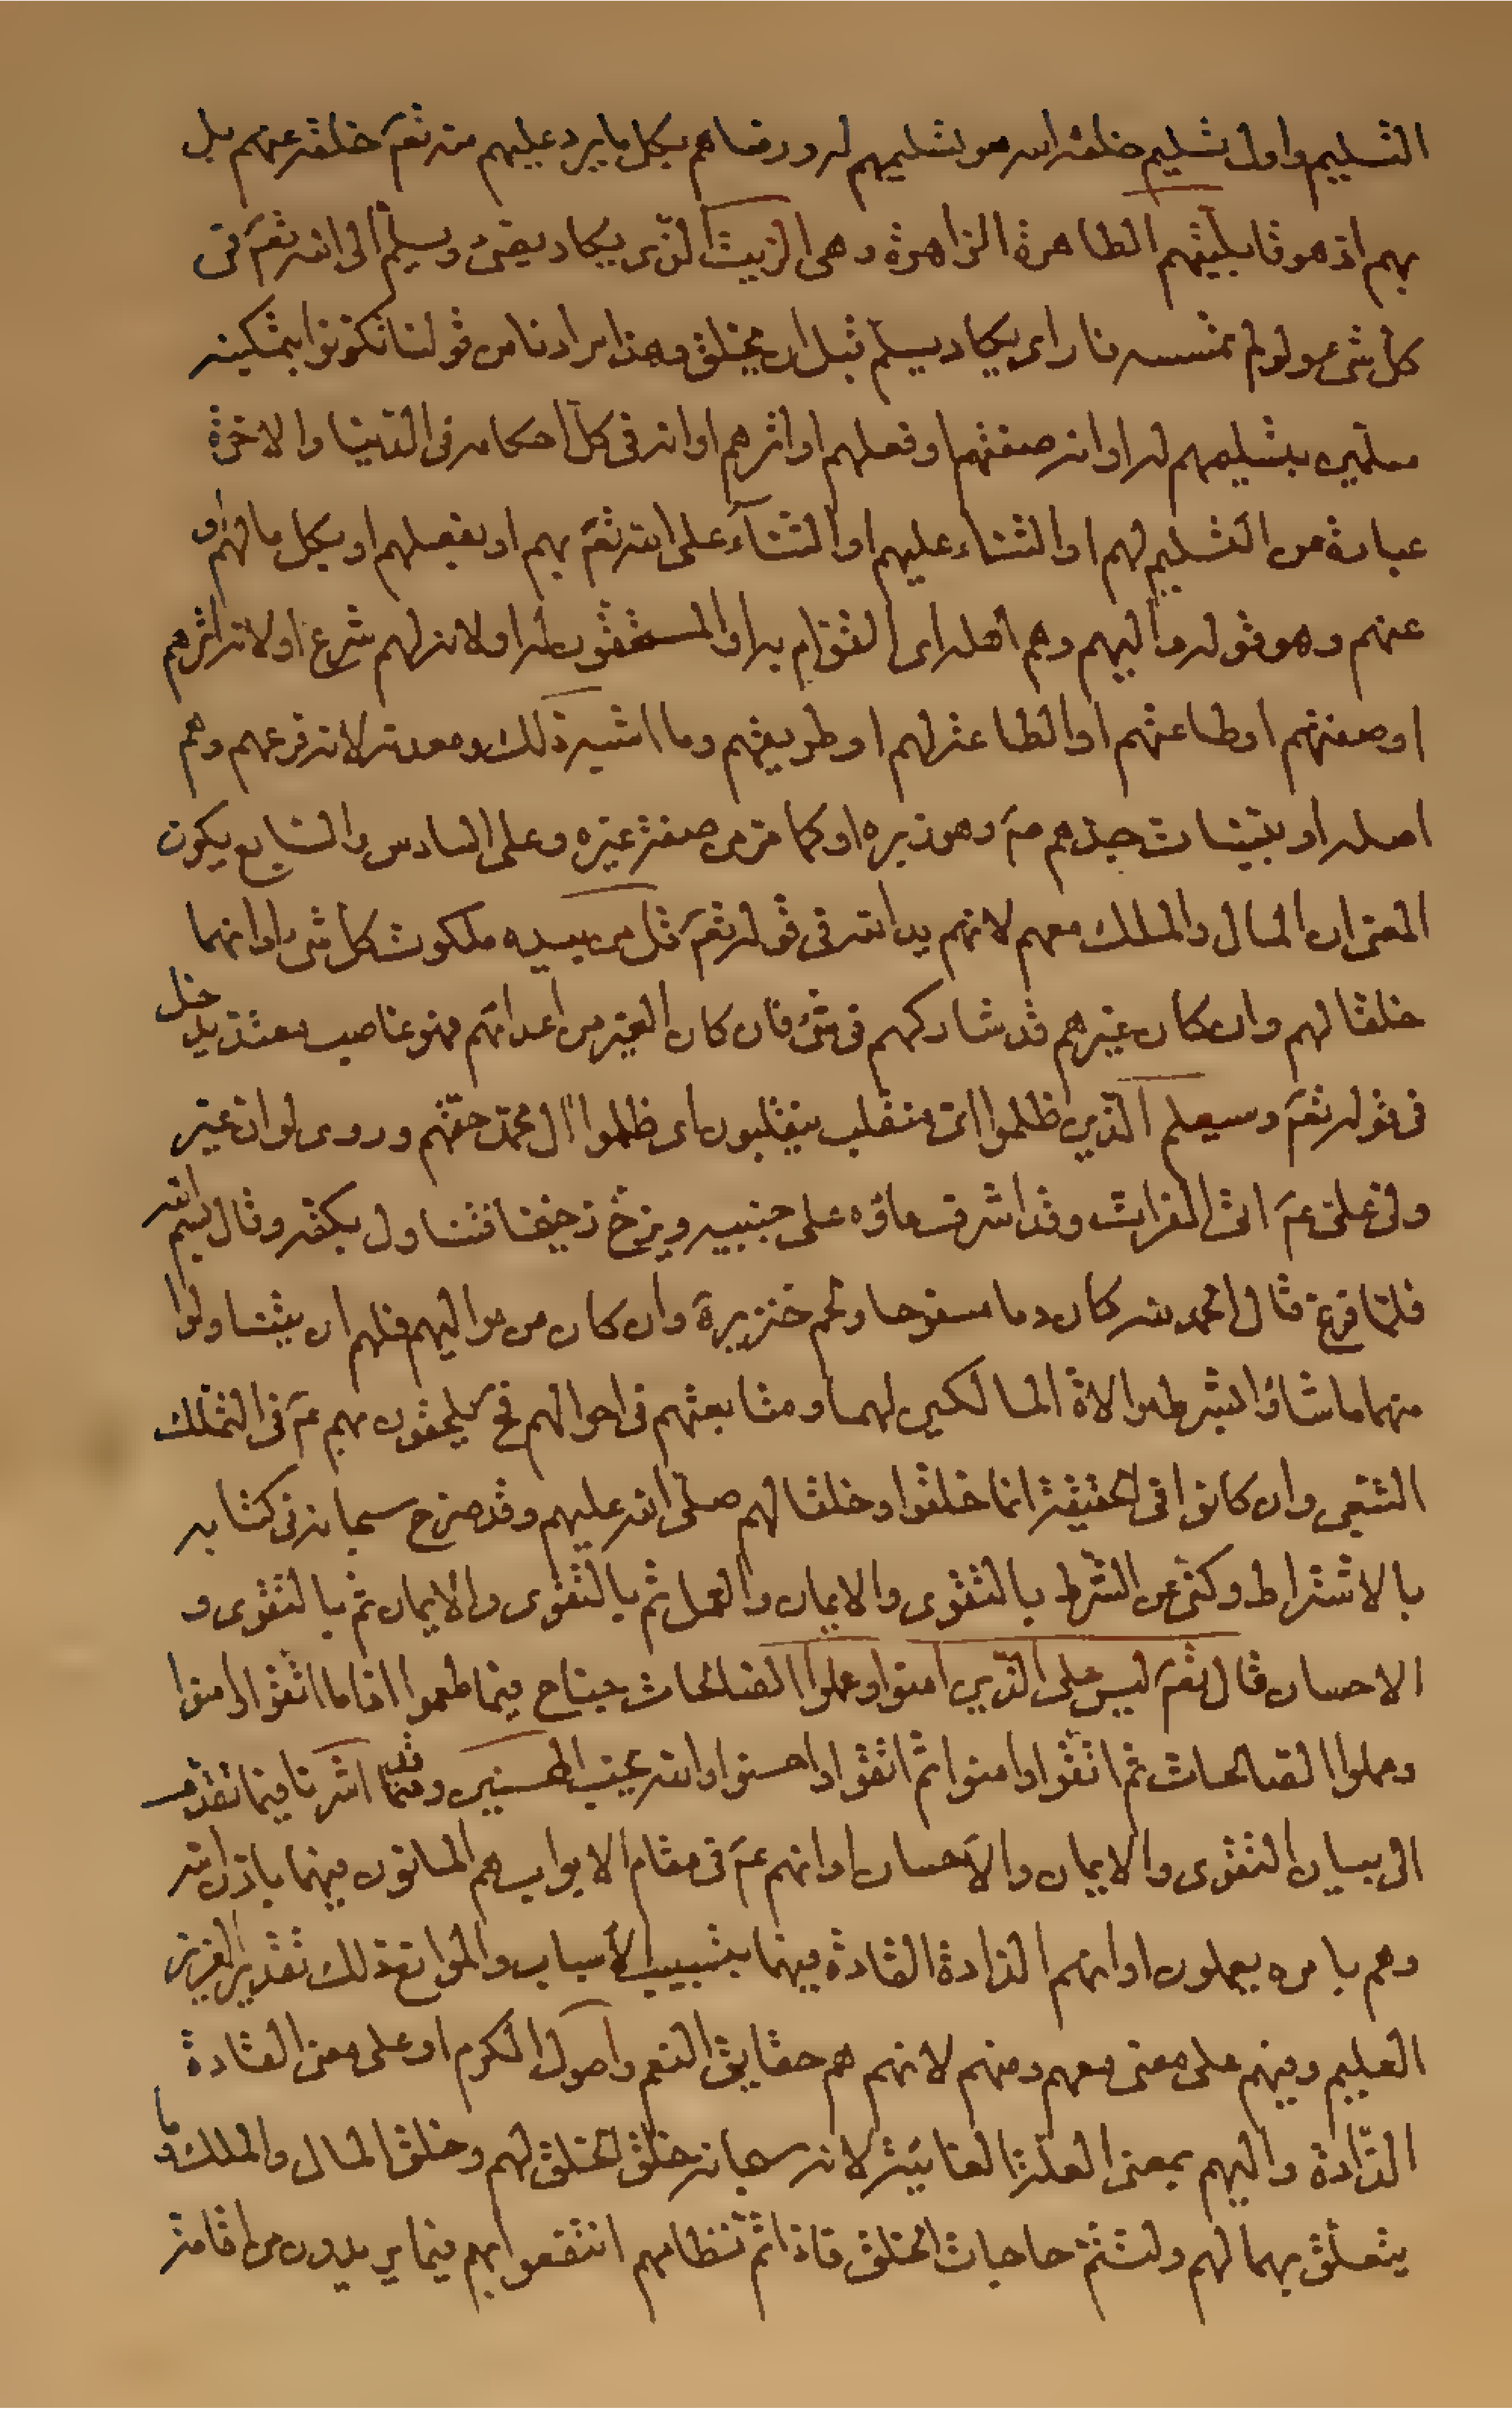 التسليم واول تسليم خلقه الله هو تسليمهم له ورضاهم بكل ما يرد عليهم منه تعۤ خلقه عنهم بل
بهم اذ هو قابليتهم الطاهرة الزاهرة وهى الزيت الذى يكاد يضئ ويسلم الى الله تعۤ فى
كل شئ ولو لم تمسسه نار اى يكاد يسلم قبل ان يخلق وهذا مرادنا من قولنا تكونوا بتمكينه
مسلمين بتسليمهم له او انه صفتهم او فعلهم او اثرهم او انه فى كل احكامه فى الدنيا والاخرة
عبارة من التسليم لهم او الثناء عليهم او الثناء على الله تعۤ بهم او بفعلهم او بكل ما لهم او
عنهم وهو قوله واليهم وهم اهله اى القوّام به او المستحقون له او لانه لهم شرع او لانه اثرهم
او صفتهم او طاعتهم او الطاعة لهم او طريقتهم وما اشبه ذلك ومعدنه لانه فرعهم وهم
اصله او بتبينات جدهم صۤ وهو نذيره او كما مر من صفة غيره وعلى السادس والسابع يكون
المعنى ان المال والملك معهم لانهم يد الله فى قوله تعۤ قل من بيده ملكوت كل شئ او انهما
خلقا لهم وان كان غيرهم قد شاركهم فى شئ فان كان الغير من اعدائهم فهو غاصب معتد يدخل
فى قوله تعۤ وسيعلم الذين ظلموا اى منقلب ينقلبون اى ظلموا ال محمد حقهم وروى لو ان غير
ولى على عۤ اتى الفرات وقد اشرف ماؤه على جنبيه ويزخ زخيخا فتناول بكفه وقال بسم الله
فلما فرغ قال الحمد لله كان دما مسفوحا ولحم خنزيرة وان كان من مواليهم فلهم ان يتناولوا
منهما ما شاؤا بشرط موالاة المالكين لهما ومتابعتهم فى احوالهم فح يلحقون بهم عۤ فى التملك
التبعى وان كانوا فى الحقيقة انما خلقوا وخلقا لهم صلى الله عليهم وقد صرح سبحانه فى كتابه
بالاشتراط وكنى عن الشرط بالتقوى والايمان والعمل ثم بالتقوى والايمان ثم بالتقوى و
الاحسان قال تعۤ ليس على الذين امنوا وعملوا الصالحات جناح فيما طعموا اذا ما اتقوا وامنوا
وعملوا الصالحات ثم اتقوا وامنوا ثم اتقوا واحسنوا والله يحب المحسنين وقد اشرنا فيما تقدم
الى بيان التقوى والايمان والاحسان او انهم عۤ فى مقام الابواب هم المانون فيهما باذن الله
وهم بامره يعملون او انهم الذادة القادة فيهما بتسبيب الاسباب والموانع ذلك تقدير العزيز
العليم وفيهم على معنى معهم ومنهم لانهم هم حقايق النعم واصول الكرم او على معنى القادة
الذادة واليهم بمعنى العلة الغائية لانه سبحانه خلق الخلق لهم وخلق المال والملك وما
يتعلق بهما لهم ولتتم حاجات الخلق فاذا تم نظامهم انتفعوا بهم فيما يريدون من اقامة